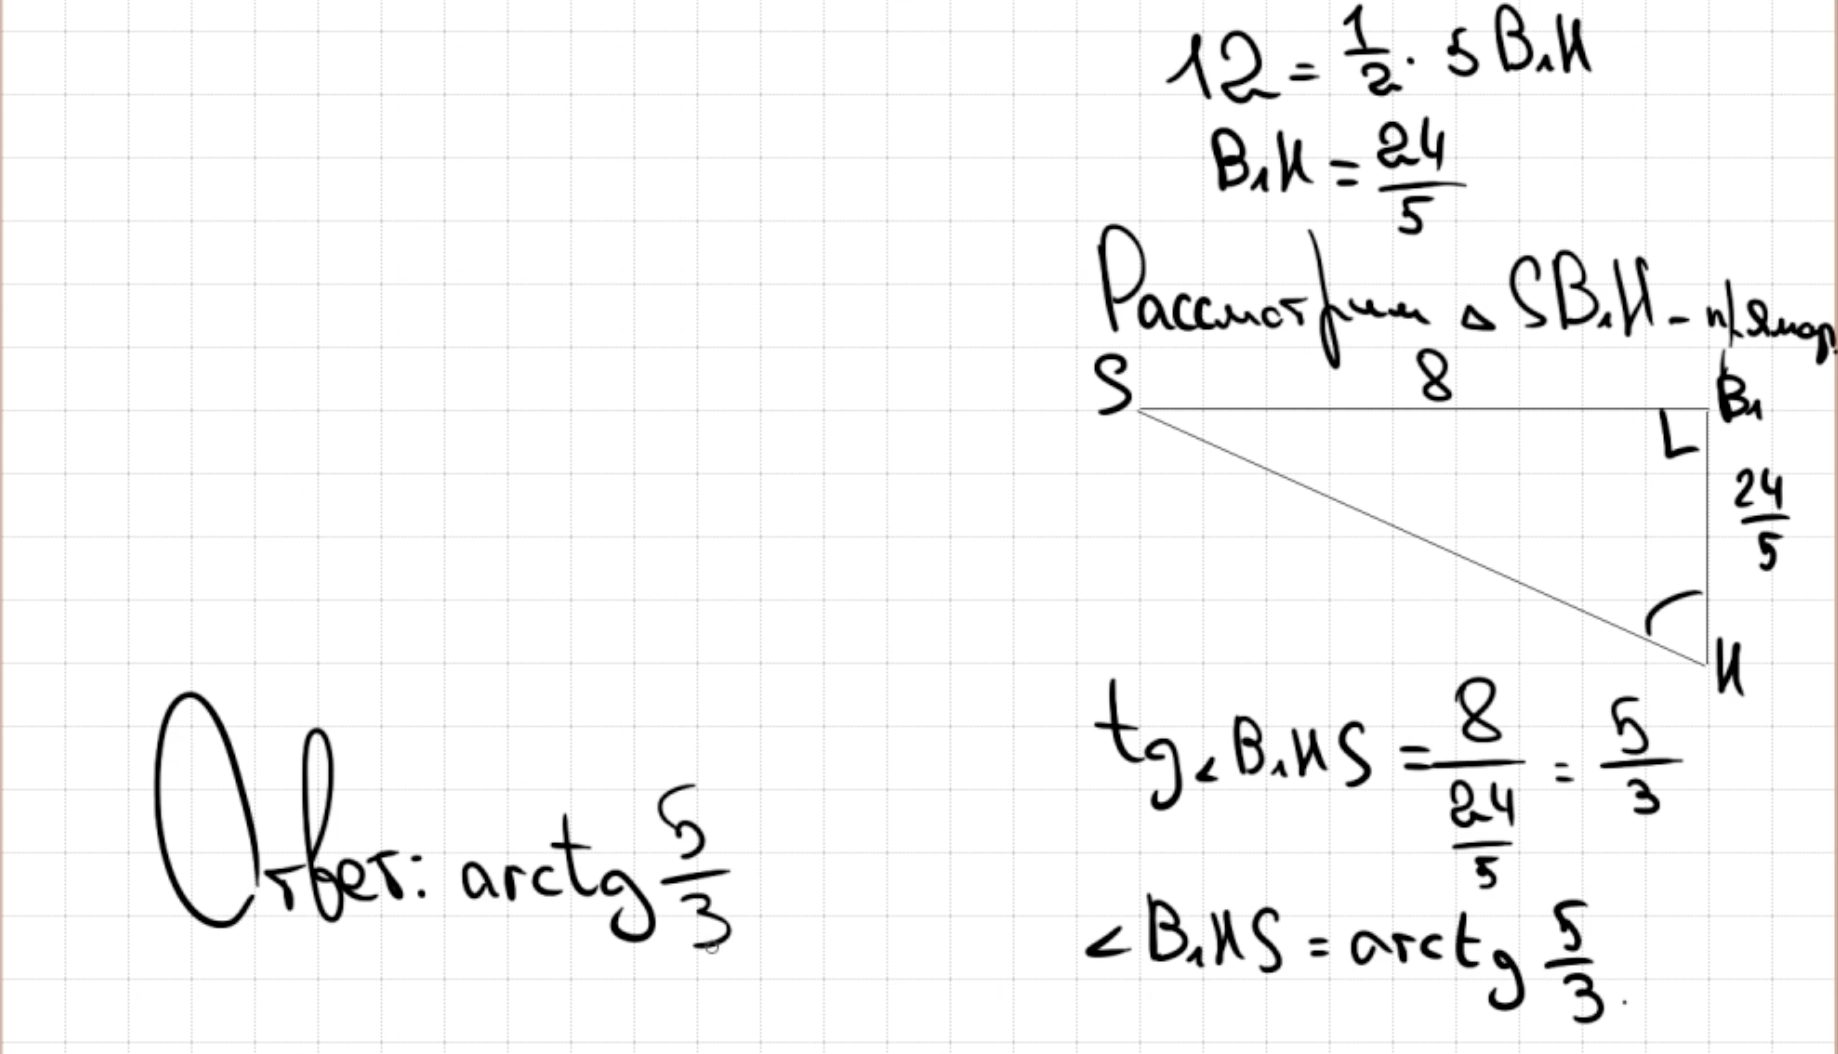 12 = 1/2 · 5 B₁H
B₁H = 24/5
Рассмотрим △ SB₁H - прямоуг.
S 8 B₁
24/5
H
tg∠B₁HS = 8/(24/5) = 5/3
∠B₁HS = arctg 5/3.
Ответ: arctg 5/3